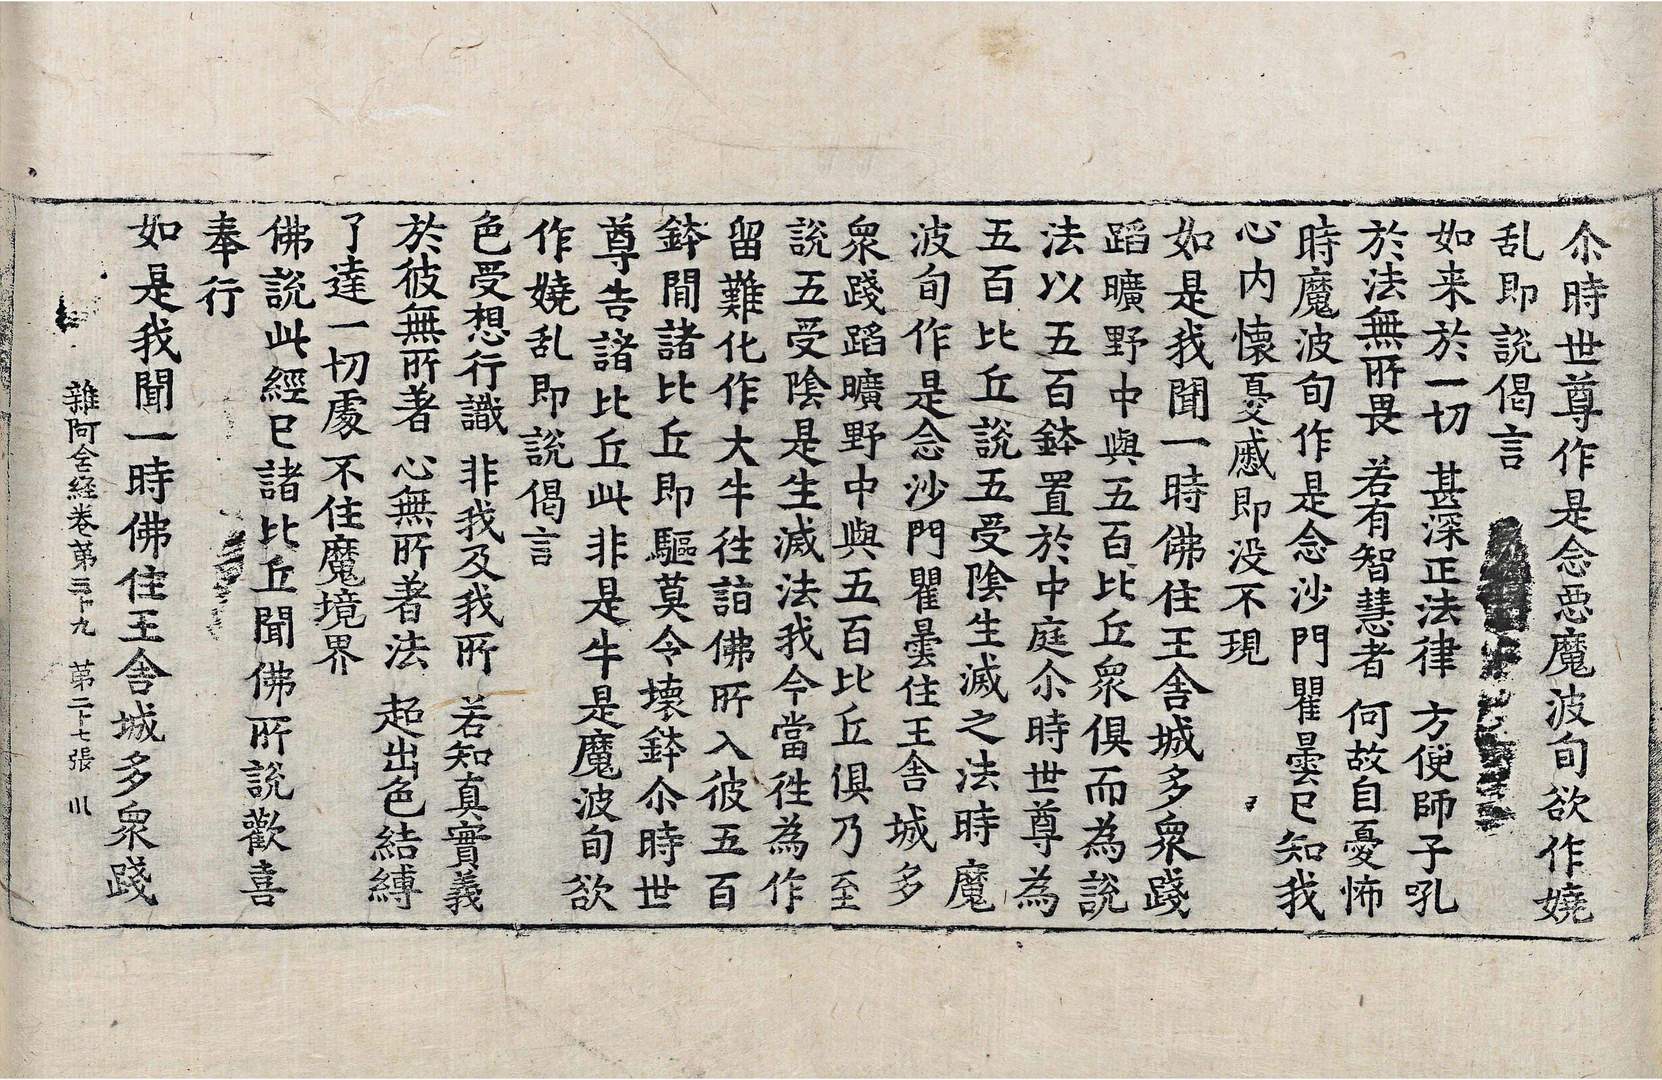 尒時世尊作是念惡魔波旬欲作嬈
乱即說偈言
如来於一切 甚深正法律 方便師子吼
於法無所畏 若有智慧者 何故自憂怖
時魔波旬作是念沙門瞿曇已知我
心内懷憂慼即没不現
如是我聞一時佛住王舍城多衆踐
蹈曠野中與五百比丘衆俱而為說
法以五百鉢置於中庭尒時世尊為
五百比丘說五受陰生滅之法時魔
波旬作是念沙門瞿曇住王舍城多
衆踐蹈曠野中與五百比丘俱乃至
說五受陰是生滅法我今當往為作
留難化作大牛往詣佛所入彼五百
鉢間諸比丘即驅莫令壞鉢尒時世
尊告諸比丘此非是牛是魔波旬欲
作嬈乱即說偈言
色受想行識 非我及我所 若知真實義
於彼無所著 心無所著法 超出色結縛
了達一切處 不住魔境界
佛說此經已諸比丘聞佛所說歡喜
奉行
如是我聞一時佛住王舍城多衆踐
雜阿含経卷第三十九 第二十七張 川